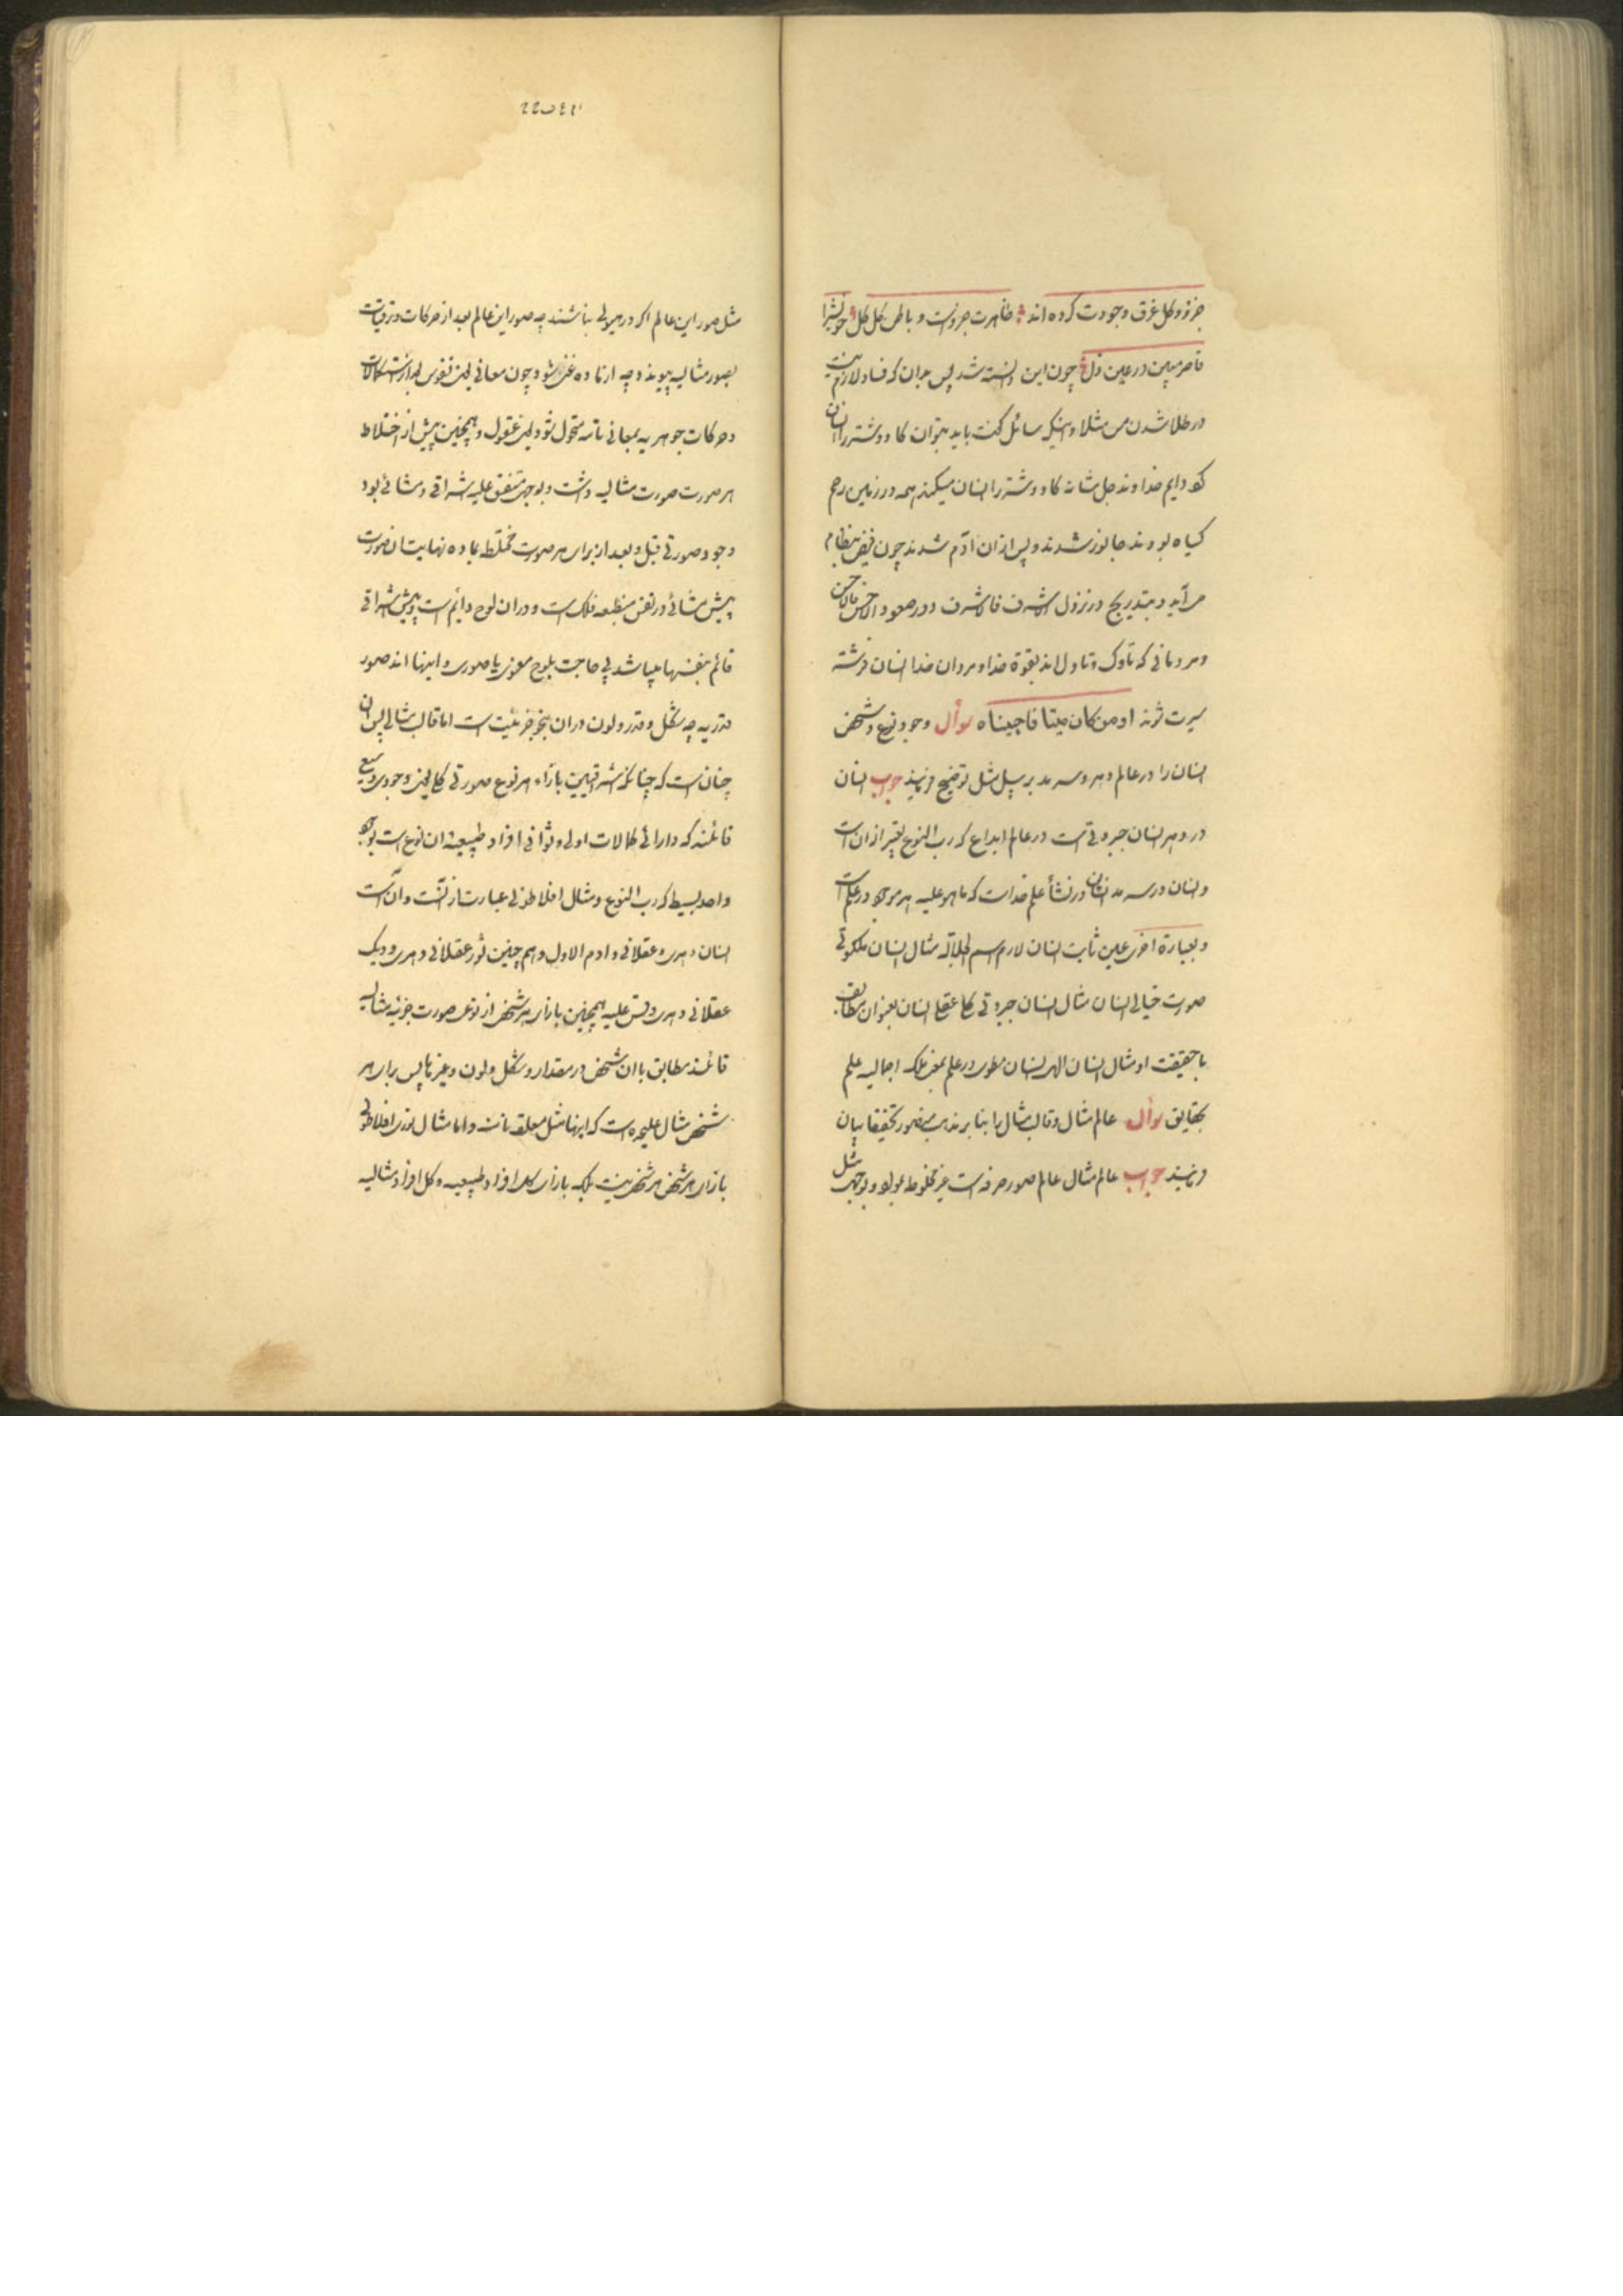 جزو و کل غرق وجودت کرده‌اند ظاهرت جزو است و باطن کل کل خویش را
قاصر مبین در عین ذل چون این دانسته شد پس بدان که فساد لازم نیست
در طلا شدن مس مثلا و اینکه سائل گفت باید بتوان گاو و شتر را انسان
کرد دایم خداوند جل شانه گاو و شتر را انسان میکند همه در زمین رحم
گیاه بودند جانور شدند و پس از آن آدم شدند چون فیض بنظام
می‌آید و بتدریج در نزول الاشرف فالاشرف و در صعود الاخس فالاخس
و مردمانی که تاوک و تاول اند بقوة خدا و مردان خدا انسان فرشته
سیرت شوند او من کان میتا فاحییناه سوأل وجود نوع و شخص
انسان را در عالم دهر و سرمد بر سبیل مثل توضیح فرمایید جواب انسان
در دهر انسان جبروتی است در عالم ابداع که رب النوع تعبیر از آن است
و انسان در سرمد انسان در نشأ علم خداست که ما هو علیه هر موجود در علم است
و بعبارة اخری عین ثابت انسان لازم اسم الجلاله مثال انسان ملکوتی
صورت خیالی انسان مثال انسان جبروتی کلی عقلی انسان بعنوان مطابق
با حقیقت او مثال انسان الهی انسان مطوی در علم بمعنی ملکه اجمالیه علم
بحقایق سوأل عالم مثال و قالب مثال را بنا بر مذهب منصور تحقیقا بیان
فرمایید جواب عالم مثال عالم صور صرفه است غیر مخلوطه بمواد و بوجهی مثل
مثل صور این عالم اگر در هیولی نباشند چه صور این عالم بعد از حرکات و ترقیات
بصور مثالیه پیوندد چه از ماده غنی شود و چون معانی یعنی نفوس بعد از استکمالات
و حرکات جوهریه بمعانی تامه متحول شود یعنی عقول و همچنین پیش از اختلاط
هر صورت صورت مثالیه داشت و بوجهی متفق علیه اشراقی و مشائی بود
وجود صورتی قبل و بعد از برای هر صورت مختلط بماده نهایت آن صورت
پیش مشائی در نفس منطبعه فلک است و در آن لوح دایم است و پیش اشراقی
قائم بنفسها میباشد بی حاجت بلوح معنوی یا صوری و اینها اند صور
قدریه چه شکل و قدر و لون در آن بنحو جزئیت است اما قالب مثالی پس آن
چنان است که چنانکه اشراقیین بازاء هر نوع صورتی کلی یعنی وجودی وسیع
قائلند که دارای کمالات اولی و ثوانی افراد طبیعیه آن نوع است بوجود
واحد بسیط که رب النوع و مثال افلاطونی عبارت از آنست و آن است
انسان دهری و عقلانی و آدم الاول و هم چنین ثور عقلانی و دهری و دیک
عقلانی و دهری و قس علیه همچنین بازاء هر شخص از نوعی صورت جزئیه مثالیه
قائلند مطابق با آن شخص در مقدار و شکل و لون و غیرها پس برای هر
شخص مثال علیحده است که اینها مثل معلقه نامند و اما مثال نوری افلاطونی
بازای هر شخص هر شخص نیست بلکه بازای کل افراد طبیعیه و کل افراد مثالیه